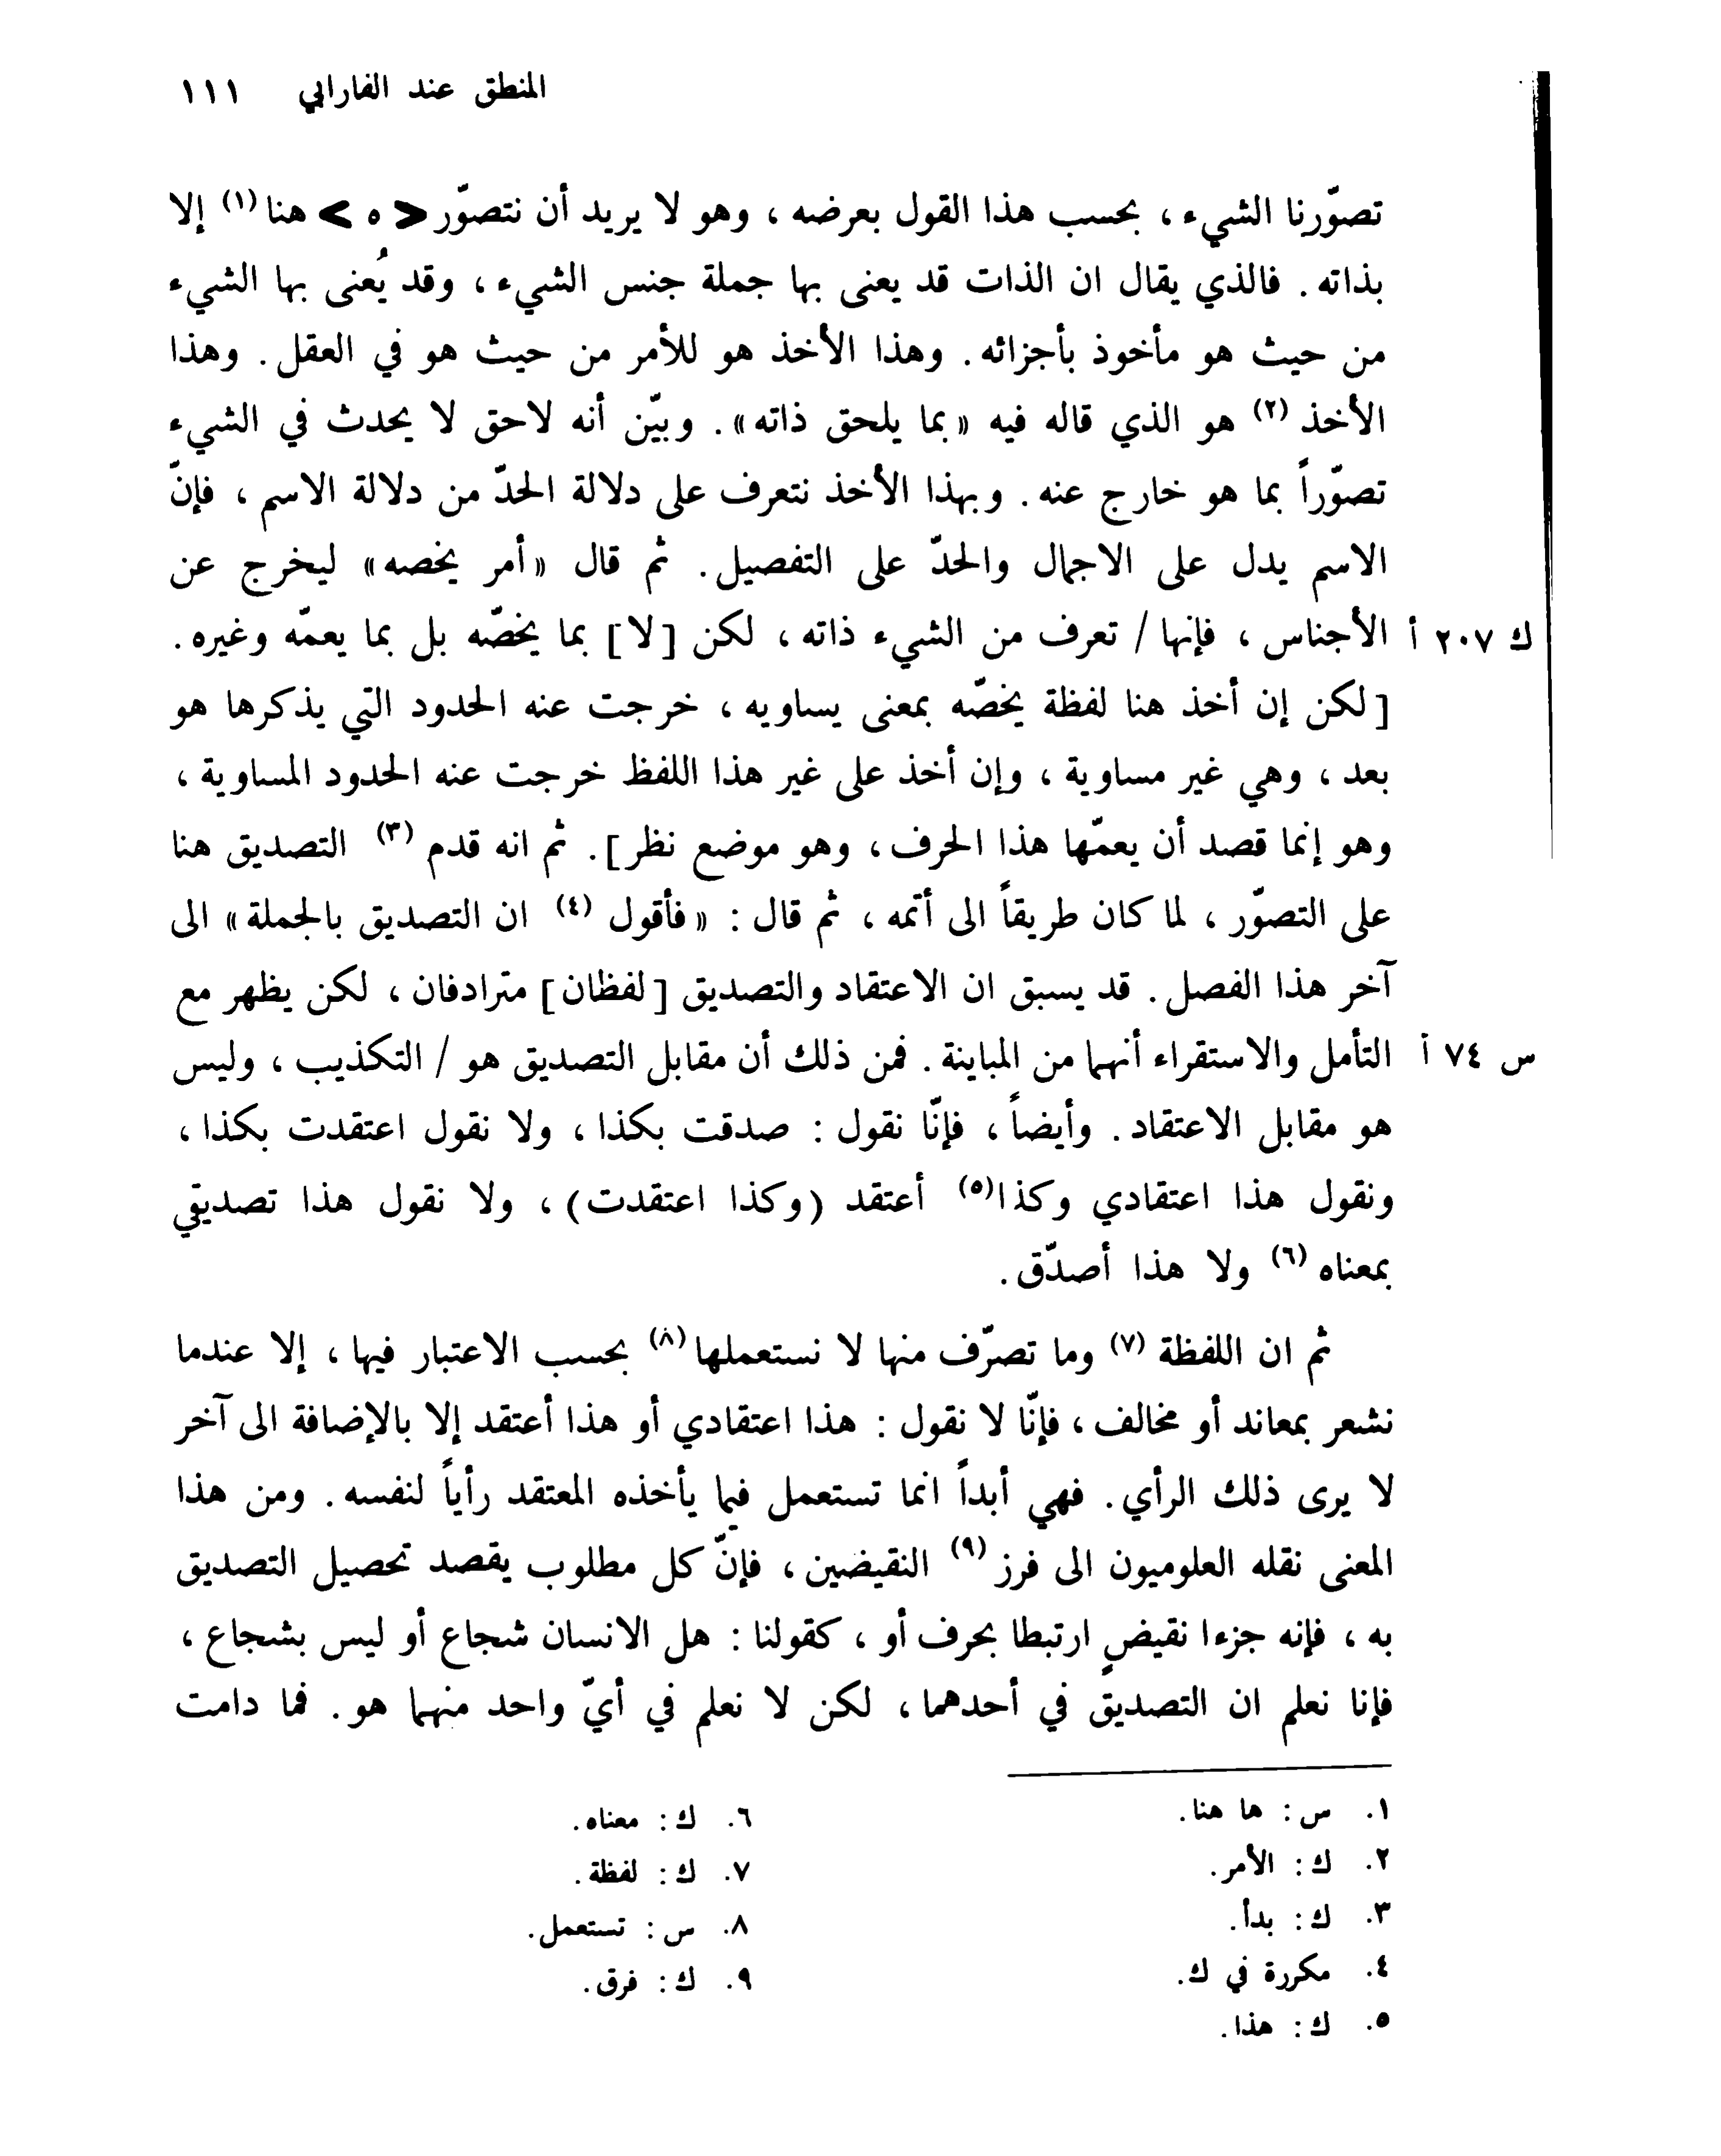 المنطق عند الفارابي ١١١
تصوّرنا الشيء ، بحسب هذا القول بعرضه ، وهو لا يريد أن نتصوّر < ه > هنا (١) إلا
بذاته . فالذي يقال ان الذات قد يعنى بها جملة جنس الشيء ، وقد يُعنى بها الشيء
من حيث هو مأخوذ بأجزائه . وهذا الأخذ هو للأمر من حيث هو في العقل . وهذا
الأخذ (٢) هو الذي قاله فيه « بما يلحق ذاته » . وبيّن أنه لاحق لا يحدث في الشيء
تصوّراً بما هو خارج عنه . وبهذا الأخذ نتعرف على دلالة الحدّ من دلالة الاسم ، فإنّ
الاسم يدل على الاجمال والحدّ على التفصيل . ثم قال « أمر يخصه » ليخرج عن
ك ٢٠٧ أ الأجناس ، فإنها / تعرف من الشيء ذاته ، لكن [ لا ] بما يخصّه بل بما يعمّه وغيره .
[ لكن إن أخذ هنا لفظة يخصّه بمعنى يساويه ، خرجت عنه الحدود التي يذكرها هو
بعد ، وهي غير مساوية ، وإن أخذ على غير هذا اللفظ خرجت عنه الحدود المساوية ،
وهو إنما قصد أن يعمّها هذا الحرف ، وهو موضع نظر ] . ثم انه قدم (٣) التصديق هنا
على التصوّر ، لما كان طريقاً الى أتمه ، ثم قال : « فأقول (٤) ان التصديق بالجملة » الى
آخر هذا الفصل . قد يسبق ان الاعتقاد والتصديق [ لفظان ] مترادفان ، لكن يظهر مع
س ٧٤ أ التأمل والاستقراء أنهما من المباينة . فمن ذلك أن مقابل التصديق هو / التكذيب ، وليس
هو مقابل الاعتقاد . وأيضاً ، فإنّا نقول : صدقت بكذا ، ولا نقول اعتقدت بكذا ،
ونقول هذا اعتقادي وكذا (٥) أعتقد ( وكذا اعتقدت ) ، ولا نقول هذا تصديقي
بمعناه (٦) ولا هذا أصدّق .
ثم ان اللفظة (٧) وما تصرّف منها لا نستعملها (٨) بحسب الاعتبار فيها ، إلا عندما
نشعر بمعاند أو مخالف ، فإنّا لا نقول : هذا اعتقادي أو هذا أعتقد إلا بالإضافة الى آخر
لا يرى ذلك الرأي . فهي أبداً انما تستعمل فيما يأخذه المعتقد رأياً لنفسه . ومن هذا
المعنى نقله العلوميون الى فرز (٩) النقيضين ، فإنّ كل مطلوب يقصد تحصيل التصديق
به ، فإنه جزءا نقيضٍ ارتبطا بحرف أو ، كقولنا : هل الانسان شجاع أو ليس بشجاع ،
فإنا نعلم ان التصديق في أحدهما ، لكن لا نعلم في أيّ واحد منهما هو . فما دامت
١. س : ها هنا .
٢. ك : الأمر .
٣. ك : بدأ .
٤. مكررة في ك .
٥. ك : هذا .
٦. ك : معناه .
٧. ك : لفظة .
٨. س : تستعمل .
٩. ك : فرق .